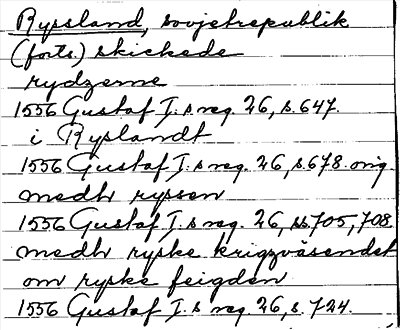 Ryssland, sovjetrepublik
(forts.) skickede
rydzerne
1556 Gustaf I:s reg. 26, s. 647.
i Ryslandt
1556 Gustaf I:s reg. 26, s. 678. orig.
medh ryssen
1556 Gustaf I:s reg. 26, ss. 705, 708
medh ryske krigzväsendet
om ryske feigden
1556 Gustaf I:s reg. 26, s. 724.